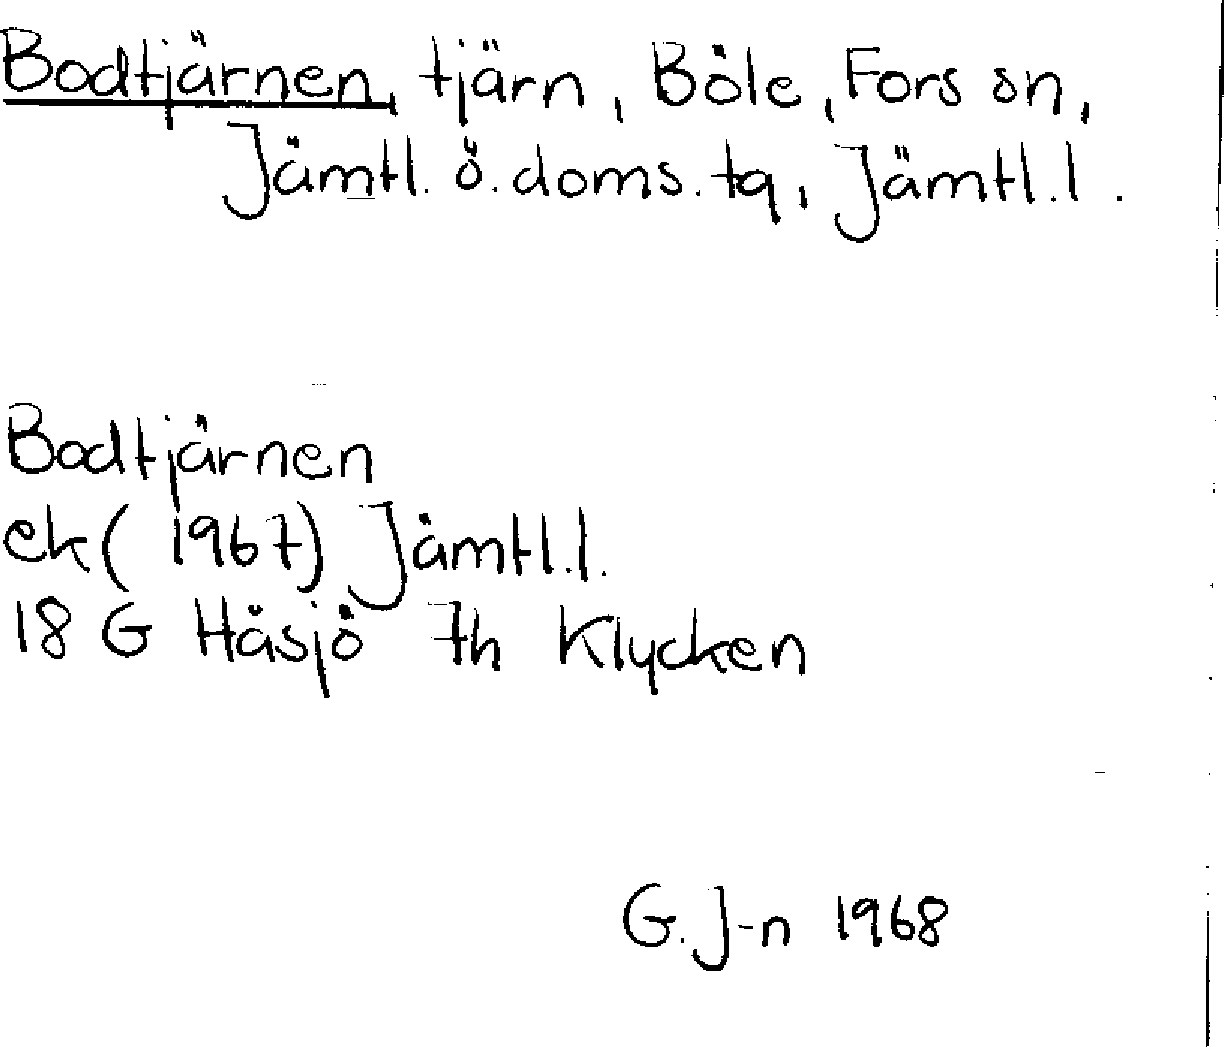 Bodtjärnen, tjärn, Böle, Fors sn,
Jämtl. ö. doms. tq, Jämtl. l.
Bodtjärnen
ek (1967) Jämtl. l.
18 G Håsjö 7h Klycken
G. J-n 1968